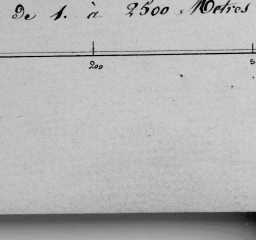 De 1. à 2500 Metres
200